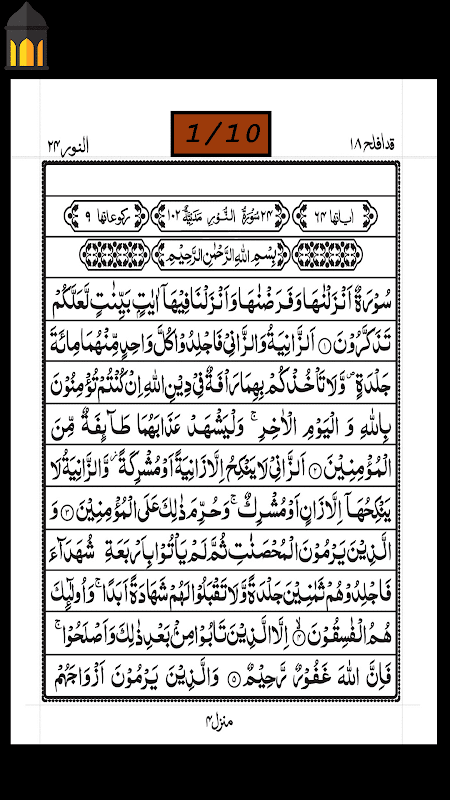 1/10
قدافلح ١٨
النور ٢٤
اٰیاتها ٦٤
٢٤ سُوْرَةُ النُّوْرِ مَدَنِیَّةٌ ١٠٢
رکوعاتها ٩
بِسْمِ اللهِ الرَّحْمٰنِ الرَّحِیْمِ
سُوْرَةٌ اَنْزَلْنٰهَا وَفَرَضْنٰهَا وَاَنْزَلْنَا فِیْهَاۤ اٰیٰتٍۭ بَیِّنٰتٍ لَّعَلَّكُمْ
تَذَكَّرُوْنَ ۝١ اَلزَّانِیَةُ وَالزَّانِیْ فَاجْلِدُوْا كُلَّ وَاحِدٍ مِّنْهُمَا مِائَةَ
جَلْدَةٍ ۪ وَّلَا تَاْخُذْكُمْ بِهِمَا رَاْفَةٌ فِیْ دِیْنِ اللهِ اِنْ كُنْتُمْ تُؤْمِنُوْنَ
بِاللهِ وَ الْیَوْمِ الْاٰخِرِ ۚ وَلْیَشْهَدْ عَذَابَهُمَا طَآىِٕفَةٌ مِّنَ
الْمُؤْمِنِیْنَ ۝٢ اَلزَّانِیْ لَا یَنْكِحُ اِلَّا زَانِیَةً اَوْ مُشْرِكَةً ؗ وَّالزَّانِیَةُ لَا
یَنْكِحُهَاۤ اِلَّا زَانٍ اَوْ مُشْرِكٌ ۚ وَحُرِّمَ ذٰلِكَ عَلَی الْمُؤْمِنِیْنَ ۝٣ وَ
الَّذِیْنَ یَرْمُوْنَ الْمُحْصَنٰتِ ثُمَّ لَمْ یَاْتُوْا بِاَرْبَعَةِ شُهَدَآءَ
فَاجْلِدُوْهُمْ ثَمٰنِیْنَ جَلْدَةً وَّلَا تَقْبَلُوْا لَهُمْ شَهَادَةً اَبَدًا ۚ وَاُولٰٓىِٕكَ
هُمُ الْفٰسِقُوْنَ ۝٤ۙ اِلَّا الَّذِیْنَ تَابُوْا مِنْۢ بَعْدِ ذٰلِكَ وَاَصْلَحُوْا ۚ
فَاِنَّ اللهَ غَفُوْرٌ رَّحِیْمٌ ۝٥ وَالَّذِیْنَ یَرْمُوْنَ اَزْوَاجَهُمْ
منزل ٤